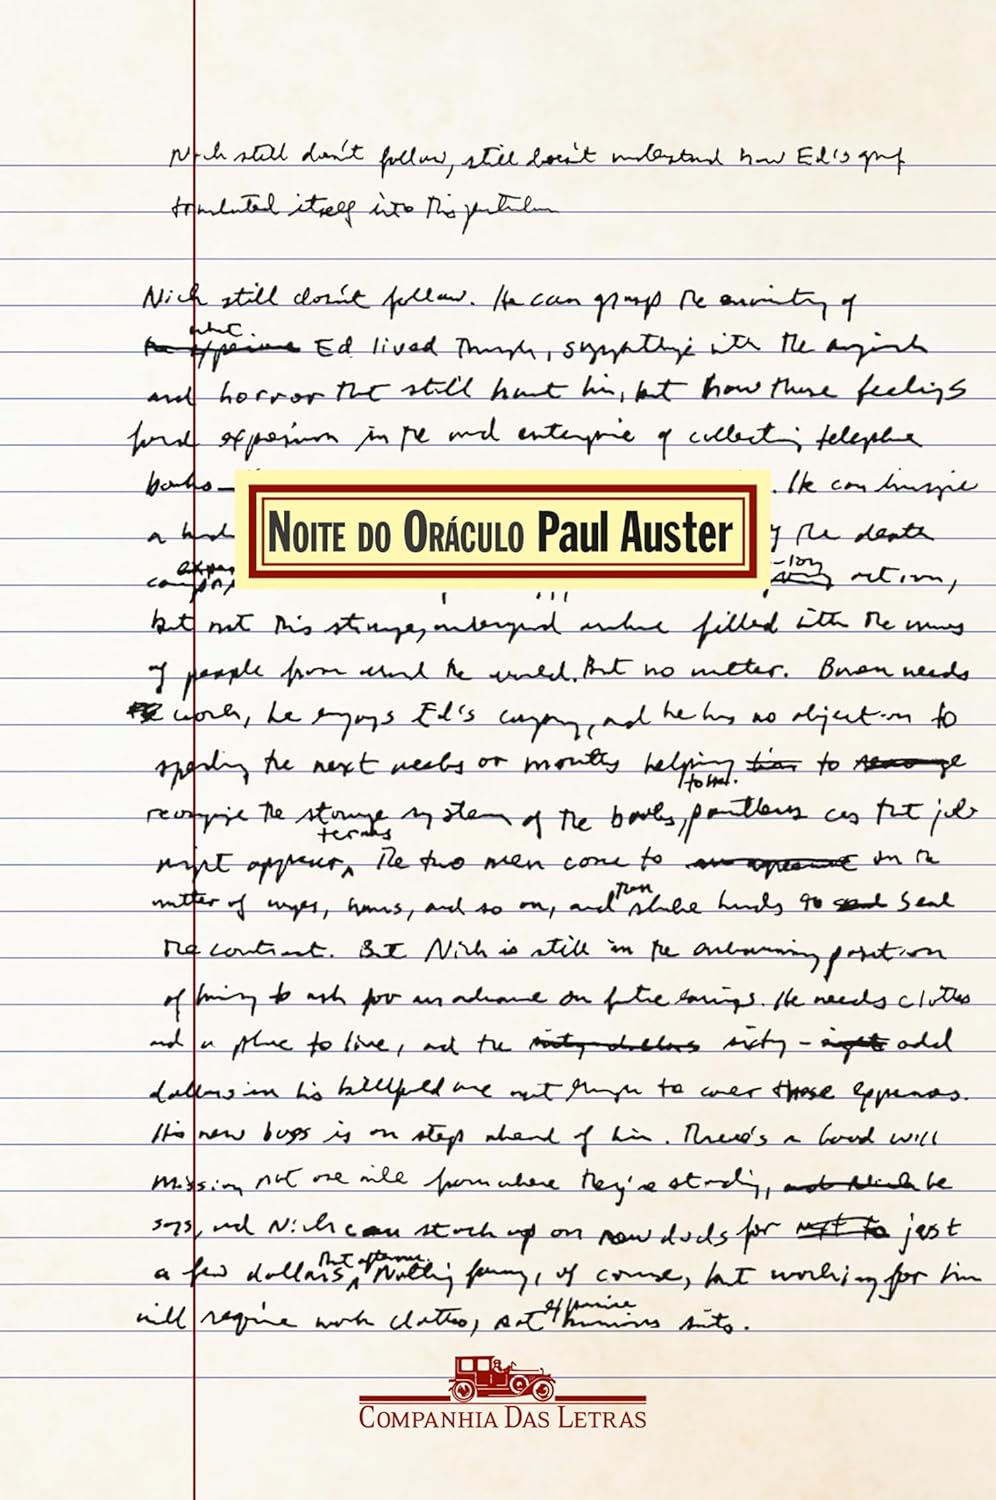 Nick still doesn't follow, still doesn't understand how Ed's grief
translated itself into this particular
Nick still doesn't follow. He can grasp the enormity of
what
the experience Ed lived through, sympathize with the anguish
and horror that still haunt him, but how those feelings
found expression in the mad enterprise of collecting telephone
books — . He can imagine
a the death
camp action,
but not this strange, underground archive filled with the names
of people from around the world. But no matter. Bowen needs
work, he enjoys Ed's company, and he has no objection to
spending the next weeks or months helping him to rearrange
to him.
reorganize the storage system of the books, pointless as that job
terms
might appear. The two men come to an agreement on the
matter of wages, hours, and so on, and shake hands to seal
then
the contract. But Nick is still in the embarrassing position
of having to ask for an advance on future earnings. He needs clothes
and a place to live, and the sixty dollars sixty-eight odd
dollars in his billfold are not enough to cover those expenses.
His new boss is one step ahead of him. There's a Goodwill
mission not one mile from where they're standing, he
says, and Nick can stock up on new duds for just
a few dollars that afternoon. Nothing fancy, of course, but working for him
will require work clothes, not expensive business suits.
NOITE DO ORÁCULO Paul Auster
COMPANHIA DAS LETRAS